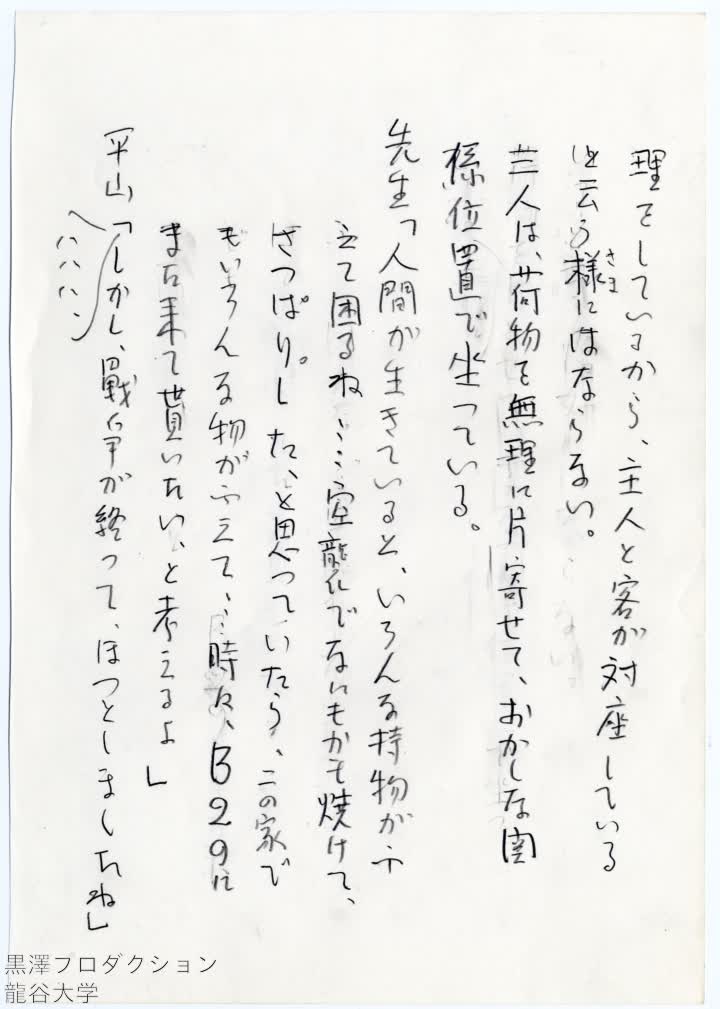 理をしているから、主人と客が対座している
と云う様にはならない。
さま
三人は、荷物を無理に片寄せて、おかしな関
係位置で坐っている。
先生「人間が生きていると、いろんな持物がふ
えて困るね…空襲でなにもかも焼けて、
さっぱりした、と思っていたら、この家で
もいろんな物がふえて、…時々、B29に
また来て貰いたい、と考えるよ」
平山「しかし、戦争が終って、ほっとしましたね」
ハハハハ
黒澤プロダクション
龍谷大学